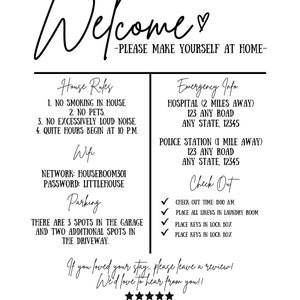 Welcome
-PLEASE MAKE YOURSELF AT HOME-
House Rules
1. NO SMOKING IN HOUSE.
2. NO PETS.
3. NO EXCESSIVELY LOUD NOISE.
4. QUITE HOURS BEGIN AT 10 P.M.
Wifi
NETWORK: HOUSEROOM501
PASSWORD: LITTLEHOUSE
Parking
THERE ARE 3 SPOTS IN THE GARAGE
AND TWO ADDITIONAL SPOTS IN
THE DRIVEWAY.
Emergency Info
HOSPITAL (2 MILES AWAY)
123 ANY ROAD
ANY STATE, 12345
POLICE STATION (1 MILE AWAY)
123 ANY ROAD
ANY STATE, 12345
Check Out
CHECK OUT TIME: 11:00 A.M.
PLACE ALL LINENS IN LAUNDRY ROOM
PLACE KEYS IN LOCK BOX
PLACE KEYS IN LOCK BOX
If you loved your stay, please leave a review!
We'd love to hear from you!!